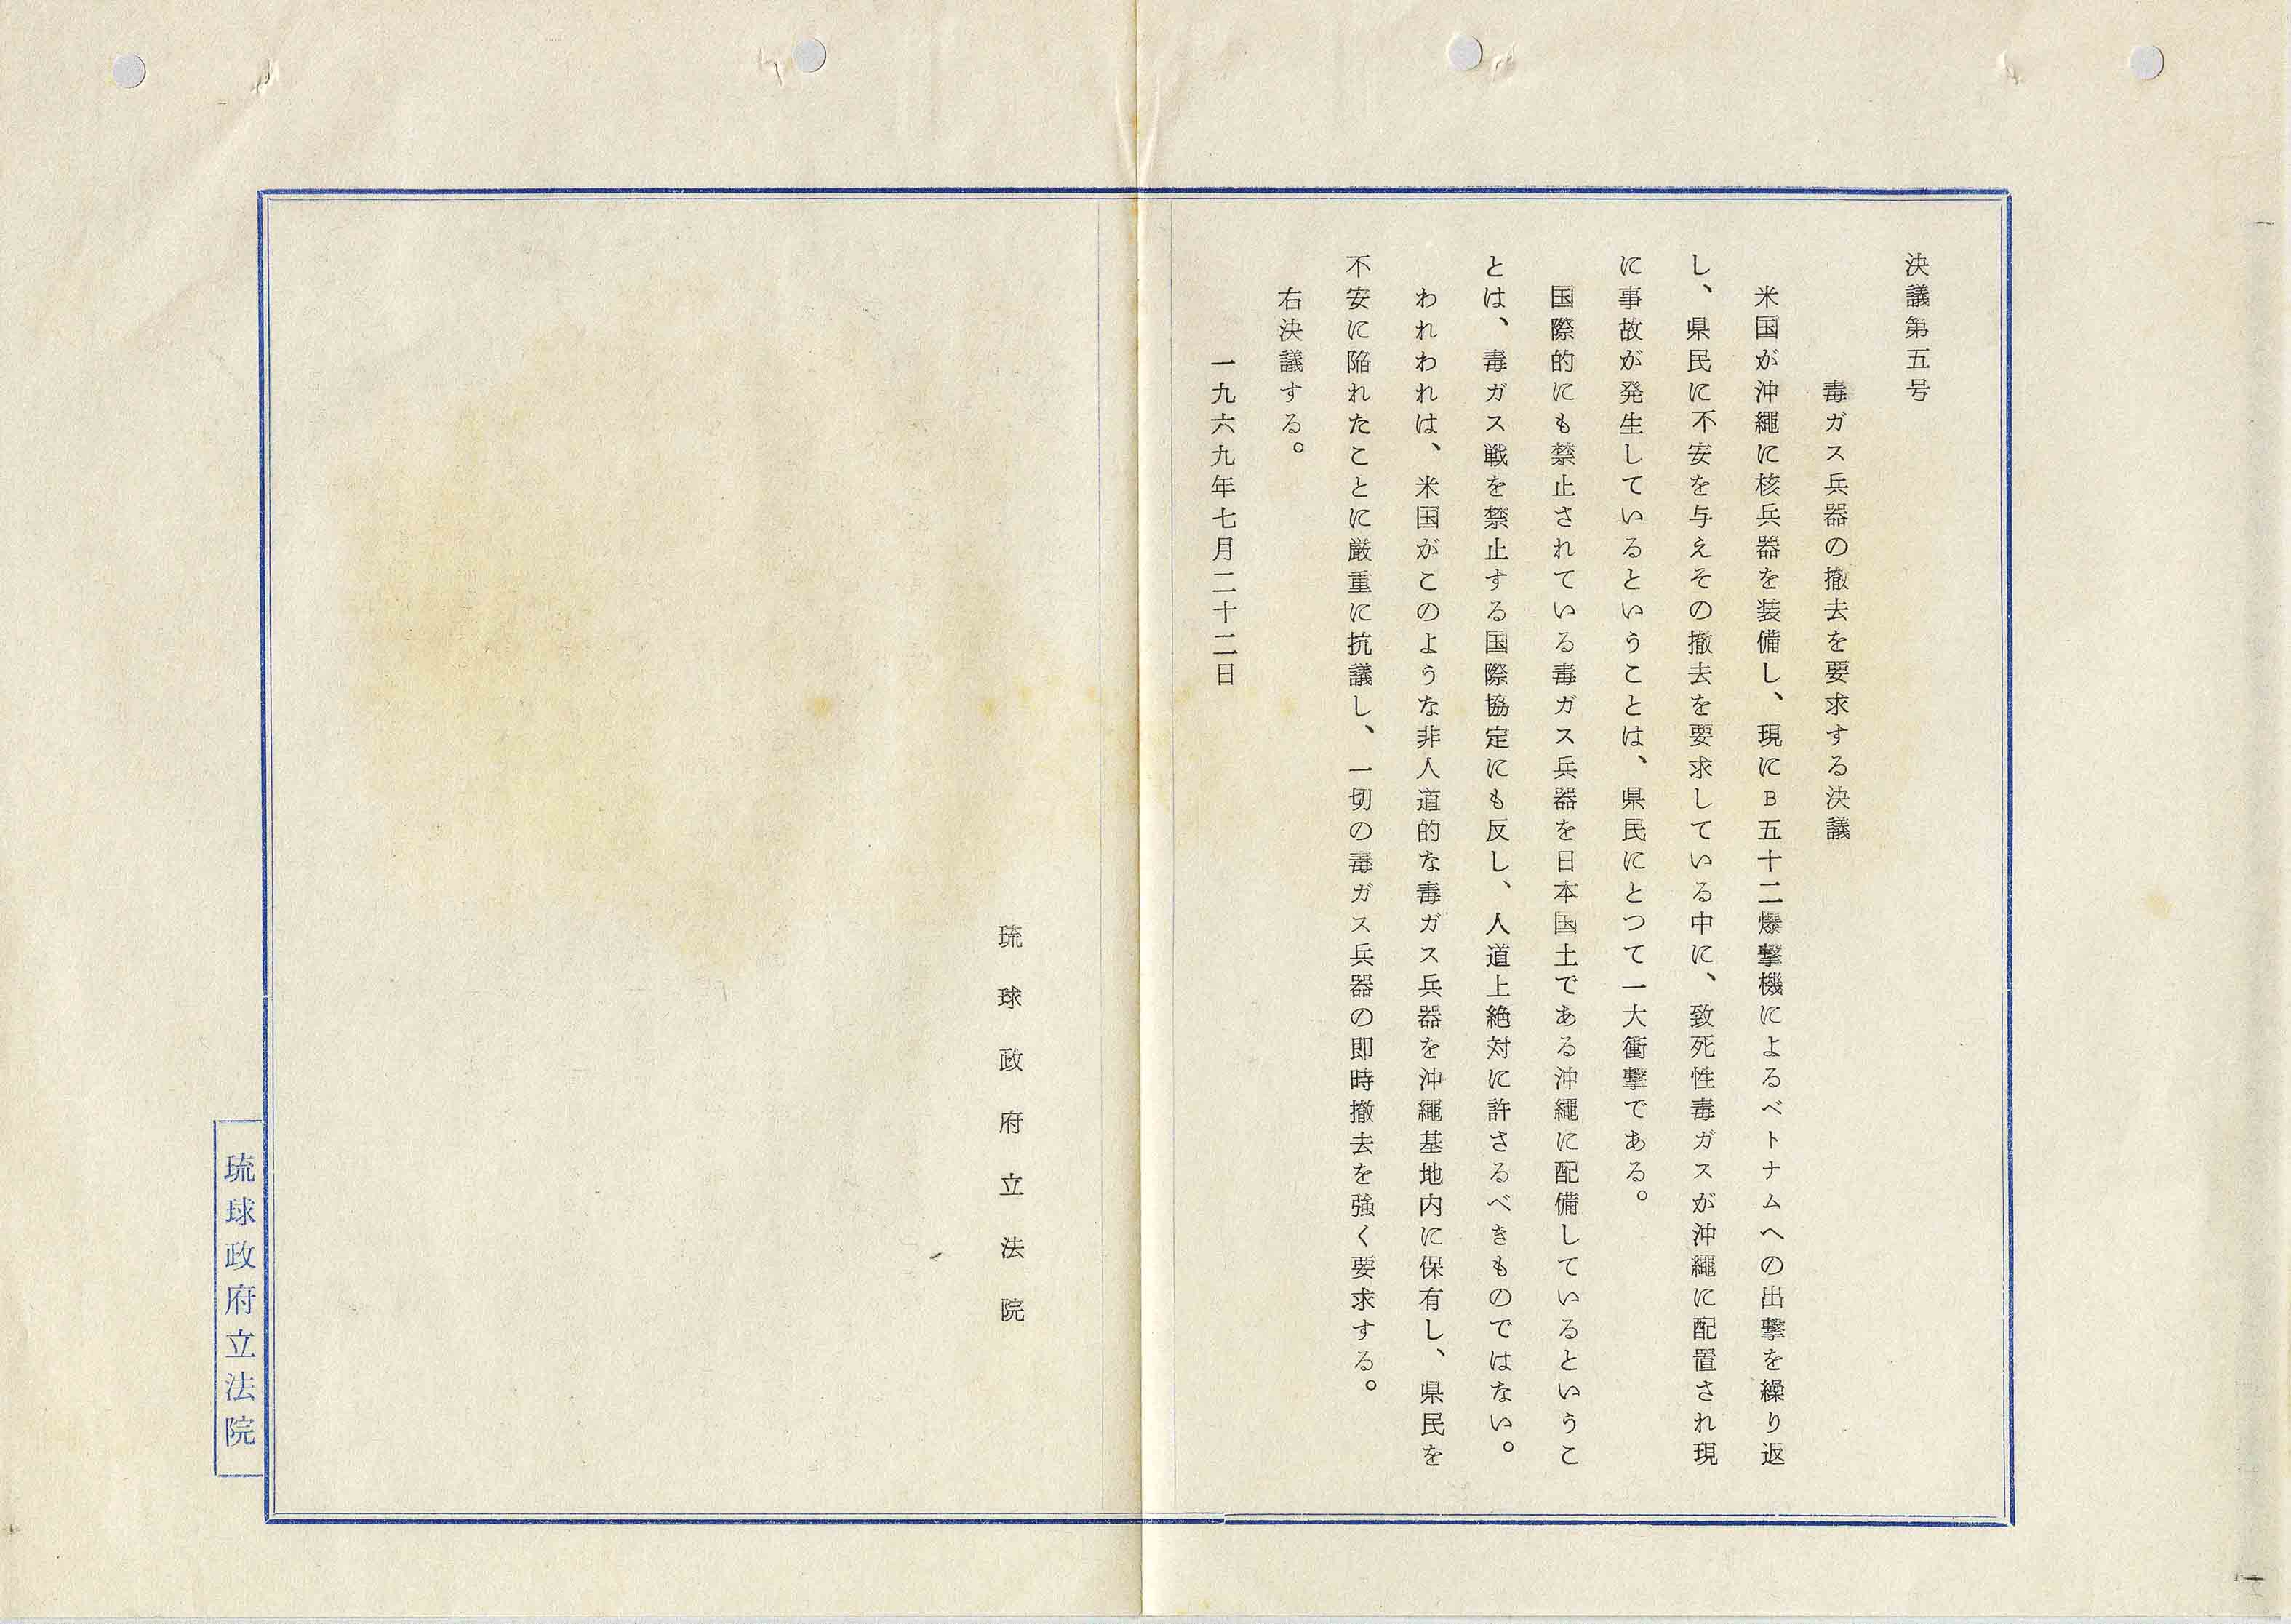 決議第五号
毒ガス兵器の撤去を要求する決議
米国が沖繩に核兵器を装備し、現にB五十二爆撃機によるベトナムへの出撃を繰り返
し、県民に不安を与えその撤去を要求している中に、致死性毒ガスが沖繩に配置され現
に事故が発生しているということは、県民にとつて一大衝撃である。
国際的にも禁止されている毒ガス兵器を日本国土である沖繩に配備しているというこ
とは、毒ガス戦を禁止する国際協定にも反し、人道上絶対に許さるべきものではない。
われわれは、米国がこのような非人道的な毒ガス兵器を沖繩基地内に保有し、県民を
不安に陥れたことに厳重に抗議し、一切の毒ガス兵器の即時撤去を強く要求する。
右決議する。
一九六九年七月二十二日
琉球政府立法院
琉球政府立法院